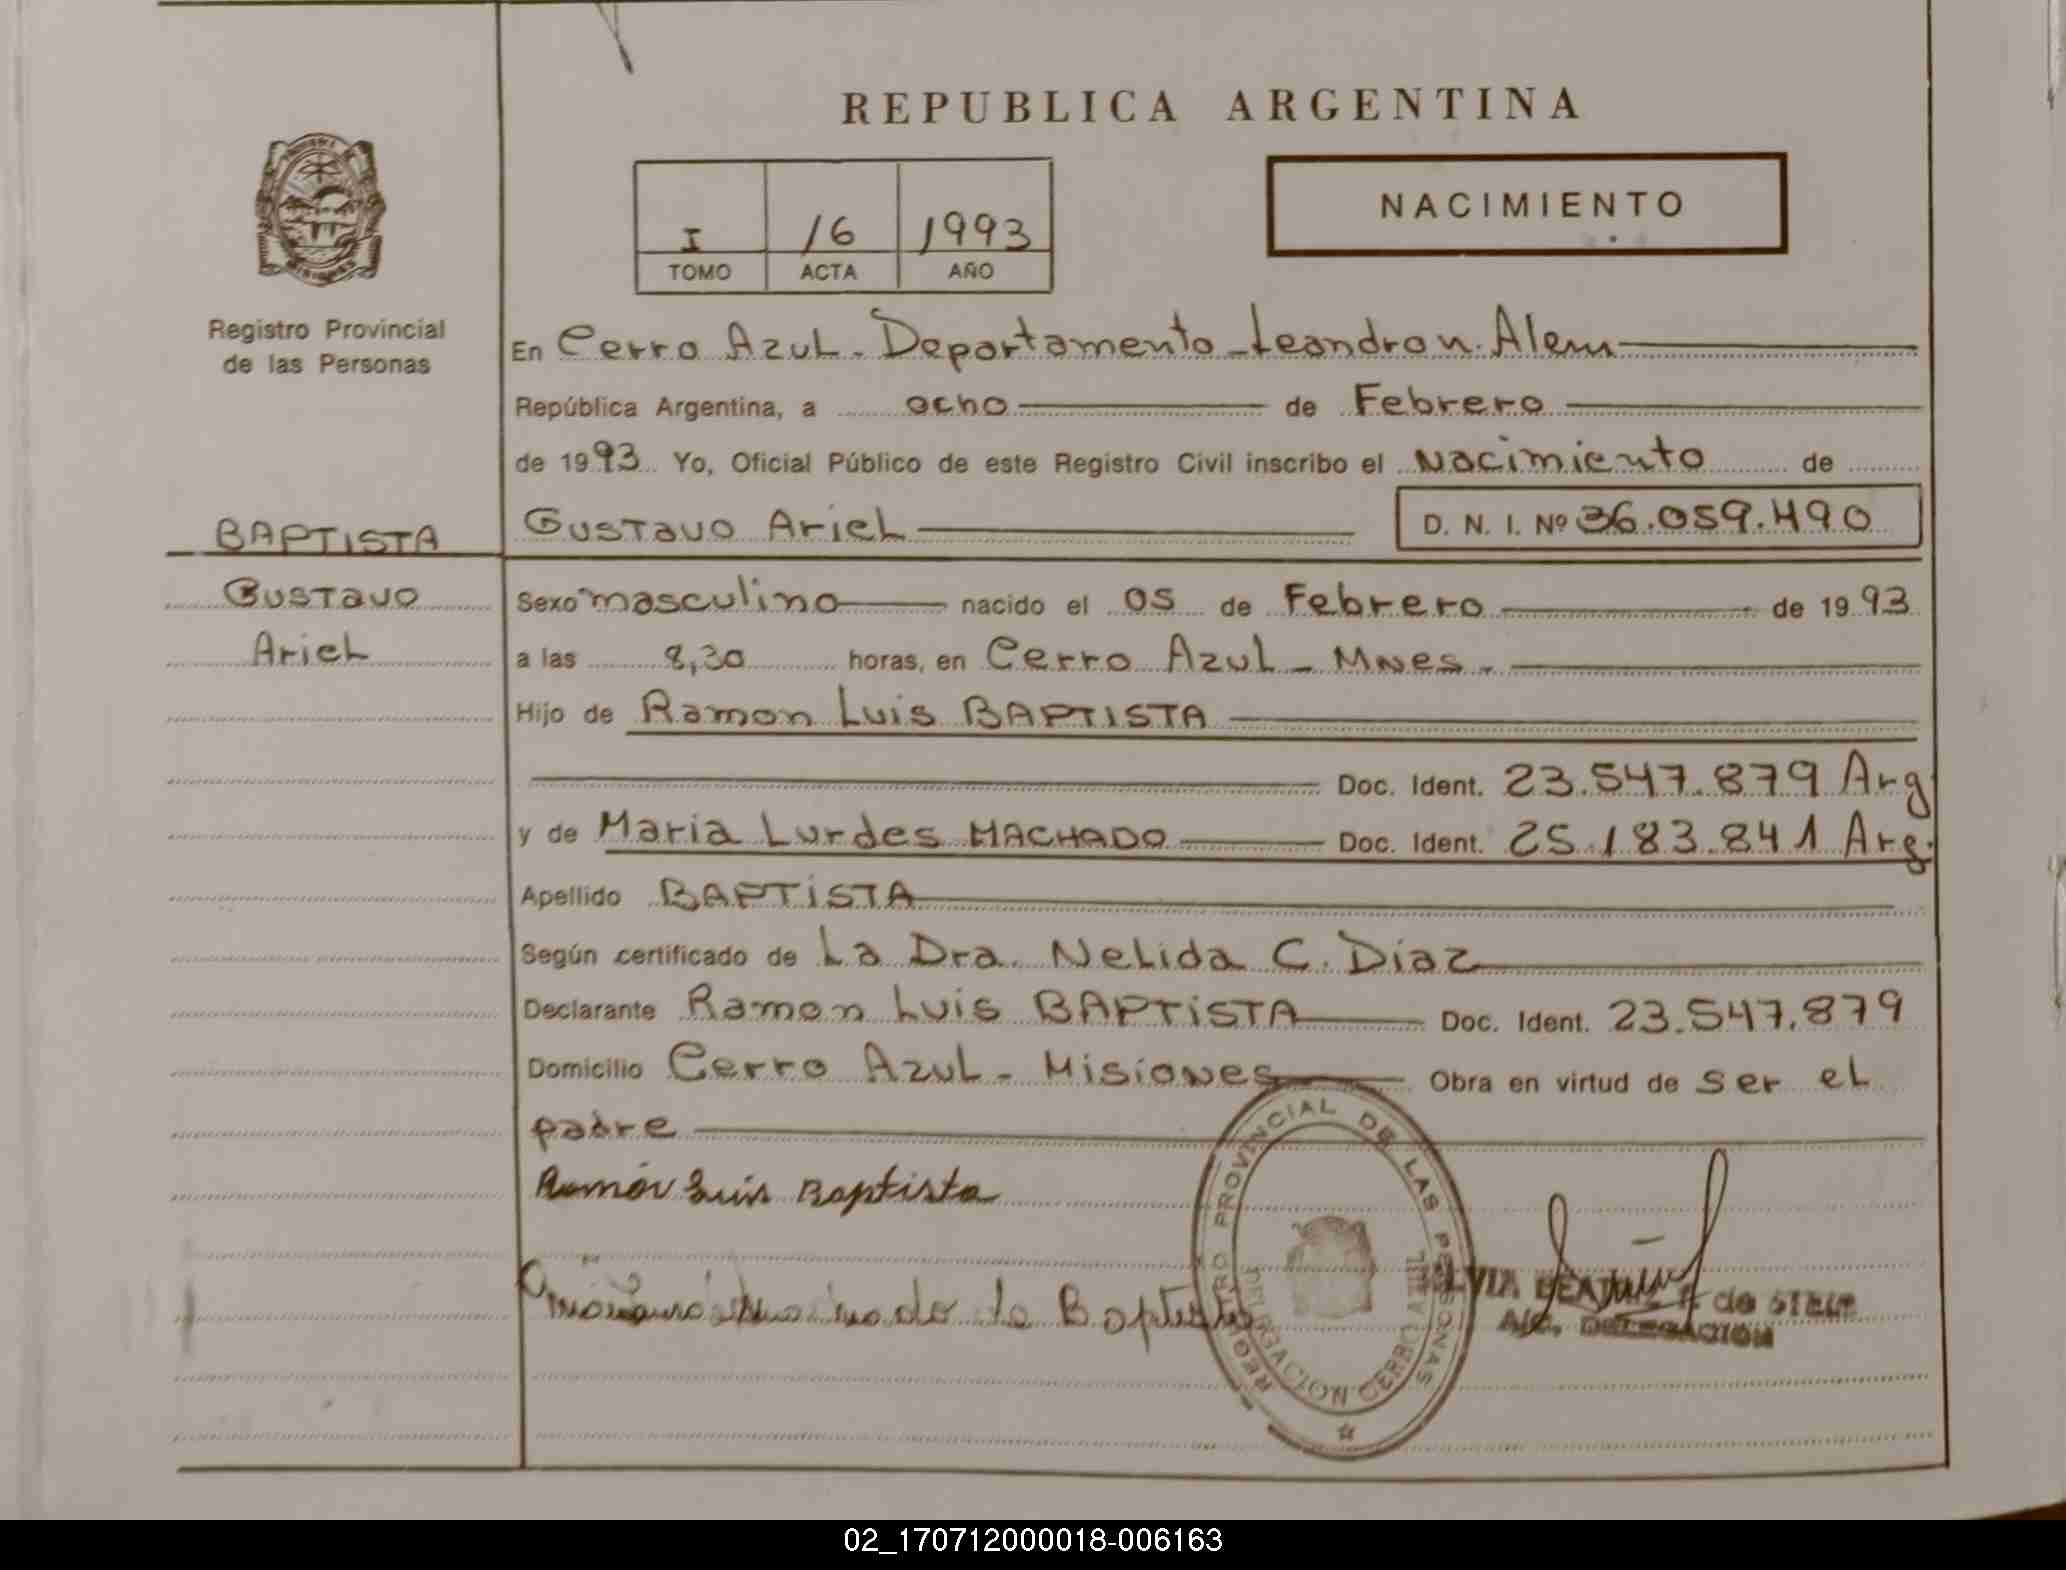 REPUBLICA ARGENTINA
I 16 1993
TOMO ACTA AÑO
NACIMIENTO
MISIONES
Registro Provincial
de las Personas
BAPTISTA
Gustavo
Ariel
En Cerro Azul - Departamento - Leandro N. Alem
República Argentina, a ocho de Febrero
de 1993 Yo, Oficial Público de este Registro Civil inscribo el Nacimiento de
Gustavo Ariel D. N. I. Nº 36.059.490
Sexo masculino nacido el 05 de Febrero de 1993
a las 8,30 horas, en Cerro Azul - Mnes -
Hijo de Ramon Luis BAPTISTA
Doc. Ident. 23.547.879 Arg
y de Maria Lurdes MACHADO Doc. Ident. 25.183.841 Arg.
Apellido BAPTISTA
Según certificado de La Dra. Nelida C. Diaz
Declarante Ramon Luis BAPTISTA Doc. Ident. 23.547.879
Domicilio Cerro Azul - Misiones Obra en virtud de ser el
padre
Ramón Luis Baptista
de Baptista
REGISTRO PROVINCIAL DE LAS PERSONAS
DELEGACION CERRO AZUL
de STEIP
A/C. DELEGACION
02_170712000018-006163